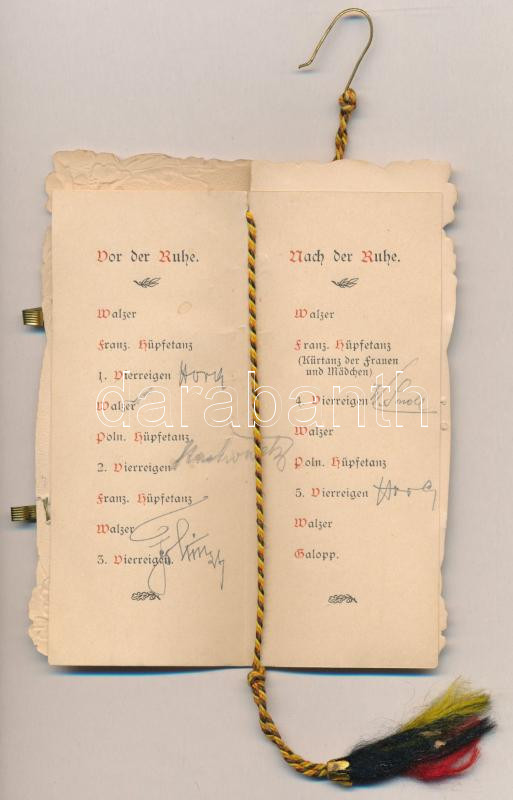 Vor der Ruhe.
Walzer
Franz. Hüpfetanz
1. Vierreigen Horch
Walzer
Poln. Hüpfetanz
2. Vierreigen
Franz. Hüpfetanz
Walzer
3. Vierreigen.
Nach der Ruhe.
Walzer
Franz. Hüpfetanz
(Kürtanz der Frauen
und Mädchen)
4. Vierreigen
Walzer
Poln. Hüpfetanz
5. Vierreigen Horch
Walzer
Galopp.
darabanth